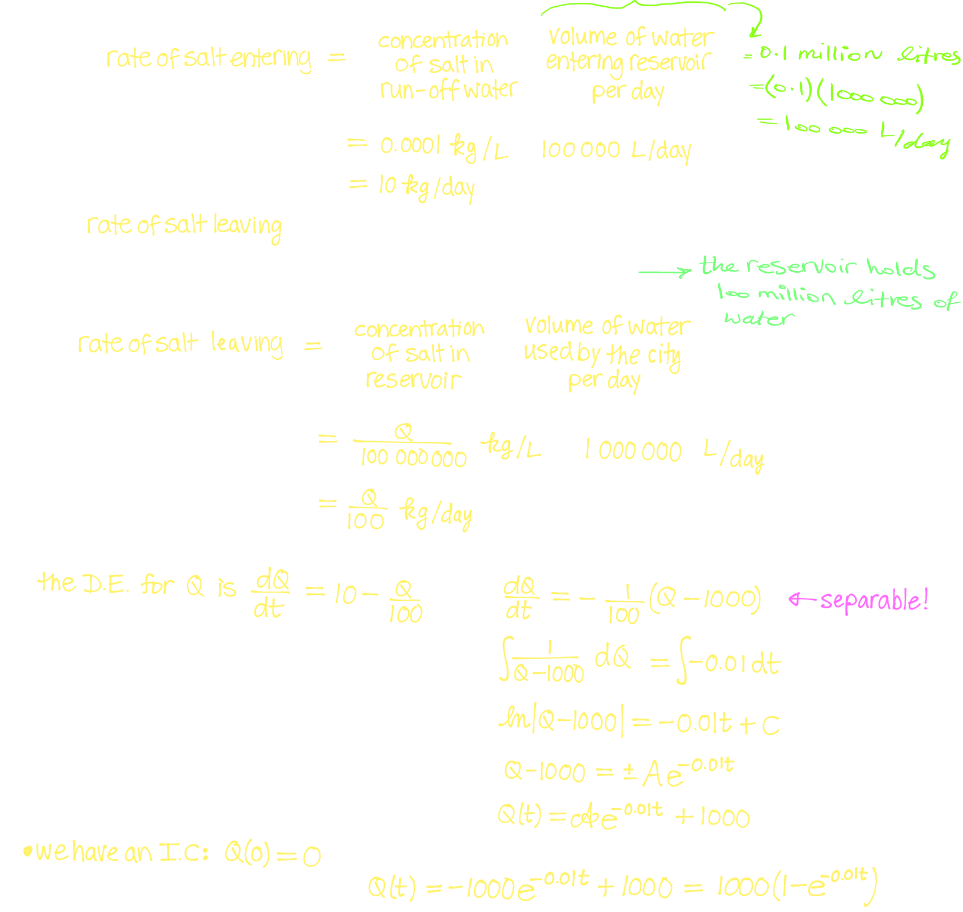 rate of salt entering = concentration of salt in run-off water volume of water entering reservoir per day
= 0.1 million litres
= (0.1)(1000 000)
= 100 000 L/day
= 0.0001 kg/L 100 000 L/day
= 10 kg/day
rate of salt leaving
→ the reservoir holds
100 million litres of
water
rate of salt leaving = concentration of salt in reservoir volume of water used by the city per day
= Q/100 000 000 kg/L 1 000 000 L/day
= Q/100 kg/day
the D.E. for Q is dQ/dt = 10 - Q/100 dQ/dt = - 1/100 (Q - 1000) ← separable!
∫ 1/(Q-1000) dQ = ∫ -0.01 dt
ln|Q-1000| = -0.01t + C
Q-1000 = ± A e^(-0.01t)
Q(t) = e^(-0.01t) + 1000
• we have an I.C: Q(0) = 0
Q(t) = -1000e^(-0.01t) + 1000 = 1000(1-e^(-0.01t))